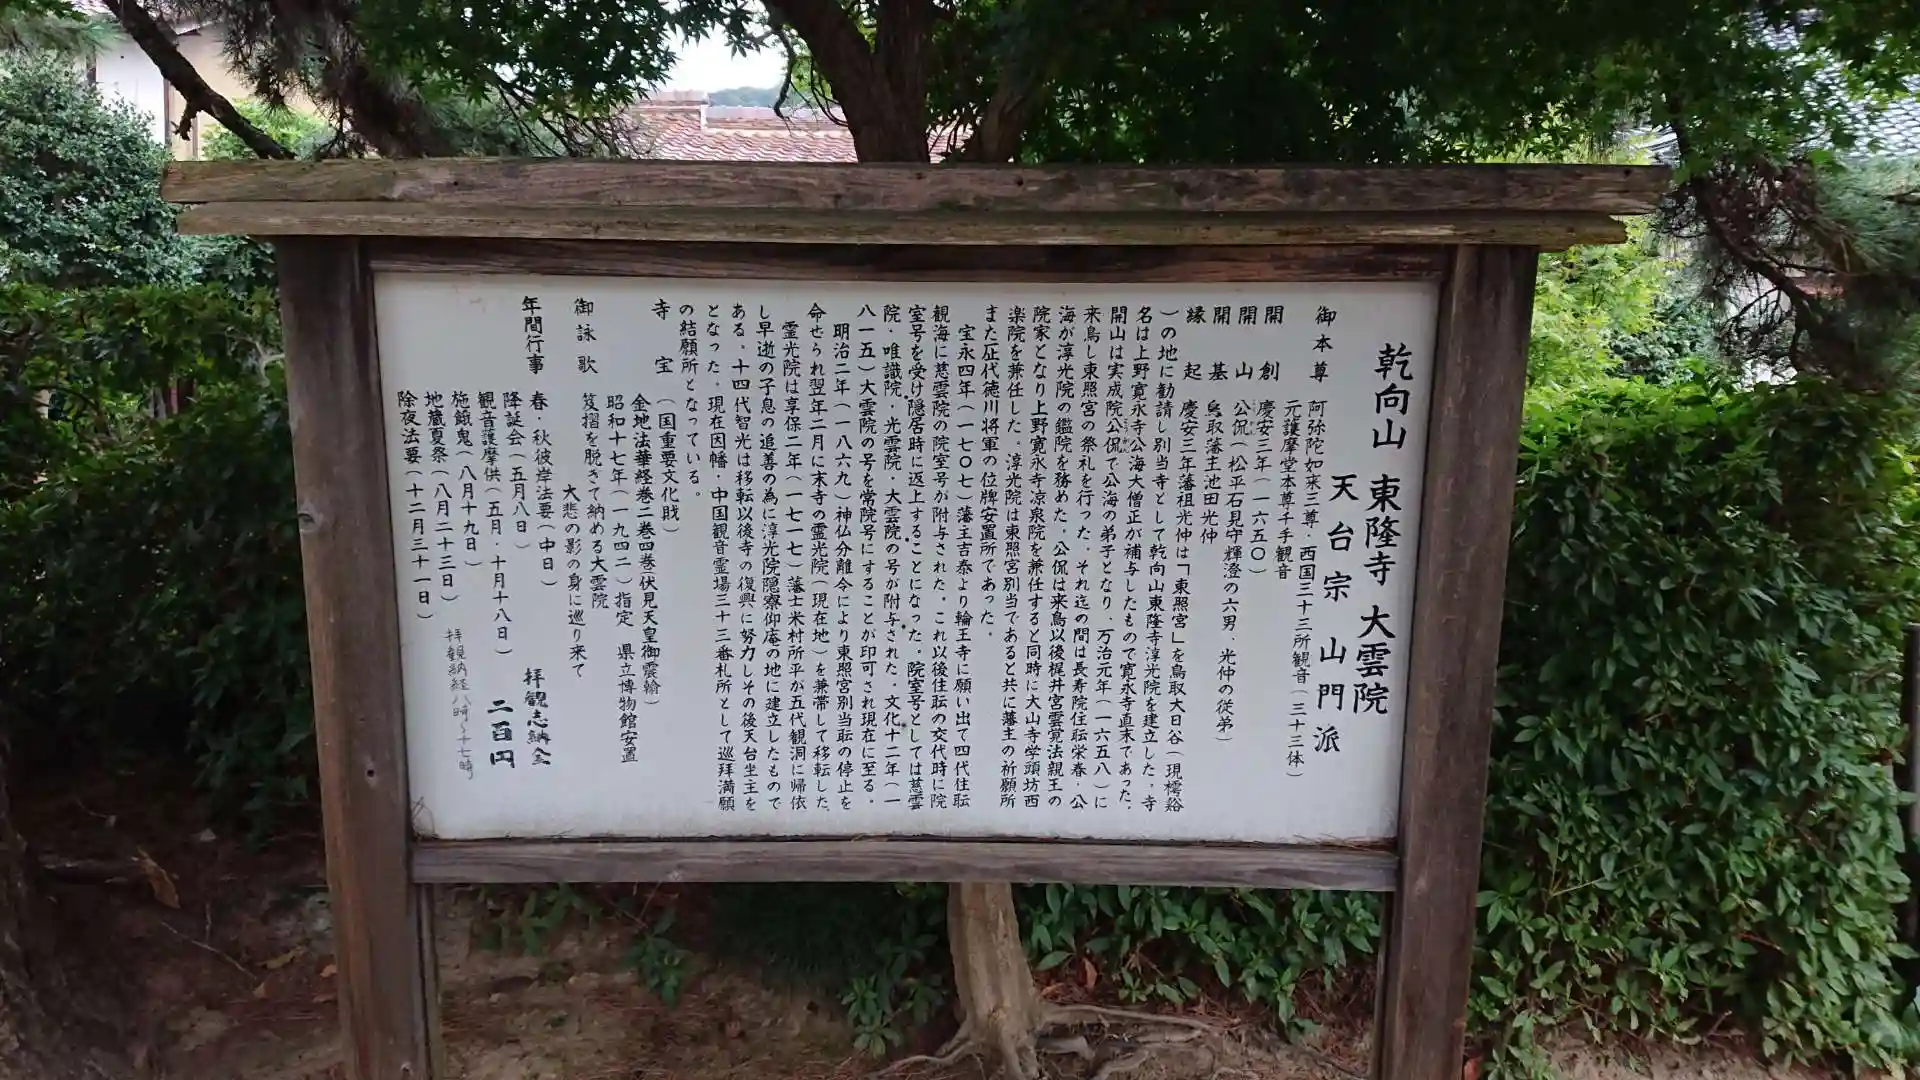 乾向山 東隆寺 大雲院
天台宗 山門派
御本尊 阿弥陀如来三尊・西国三十三所観音(三十三体)
元護摩堂本尊千手観音
開創 慶安三年(一六五〇)
開山 公侃(松平石見守輝澄の六男、光仲の従弟)
開基 鳥取藩主池田光仲
縁起 慶安三年藩祖光仲は「東照宮」を鳥取大日谷(現樗谿
)の地に勧請し別当寺として乾向山東隆寺淳光院を建立した。寺
名は上野寛永寺公海大僧正が補与したもので寛永寺直末であった。
開山は実成院公侃で公海の弟子となり、万治元年(一六五八)に
来鳥し東照宮の祭礼を行った。それ迄の間は長寿院住耘栄春・公
海が淳光院の鑑院を務めた。公侃は来鳥以後梶井宮雲覚法親王の
院家となり上野寛永寺凉泉院を兼任すると同時に大山寺学頭坊西
楽院を兼任した。淳光院は東照宮別当であると共に藩主の祈願所
また歴代徳川将軍の位牌安置所であった。
宝永四年(一七〇七)藩主吉泰より輪王寺に願い出て四代住耘
観海に慈雲院の院室号が附与された。これ以後住耘の交代時に院
室号を受け隠居時に返上することになった。院室号としては慈雲
院・唯識院・光雲院・大雲院の号が附与された。文化十二年(一
八一五)大雲院の号を常院号にすることが印可され現在に至る。
明治二年(一八六九)神仏分離令により東照宮別当耘の停止を
命せられ翌年二月に末寺の霊光院(現在地)を兼帯して移転した
霊光院は享保二年(一七一七)藩士米村所平が五代観洞に帰依
し早逝の子息の追善の為に淳光院隠寮仰庵の地に建立したもので
ある。十四代智光は移転以後寺の復興に努力しその後天台坐主を
となった。現在因幡・中国観音霊場三十三番札所として巡拜満願
の結願所となっている。
寺宝 (国重要文化財)
金地法華経巻二巻四巻伏見天皇御震翰)
昭和十七年(一九四二)指定 県立博物館安置
御詠歌 大悲の影の身に巡り来て
笈摺を脱ぎて納める大雲院
年間行事 春・秋彼岸法要(中日)
降誕会(五月八日)
観音護摩供(五月・十月十八日)
施餓鬼(八月十九日)
地蔵夏祭(八月二十三日)
除夜法要(十二月三十一日)
拝観志納金
二百円
拝観納経八時〜十七時